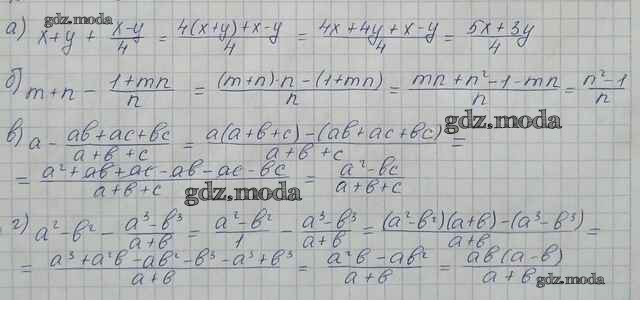 gdz.moda
а) x+y + (x-y)/4 = (4(x+y)+x-y)/4 = (4x+4y+x-y)/4 = (5x+3y)/4
б) m+n - (1+mn)/n = ((m+n)·n-(1+mn))/n = (mn+n²-1-mn)/n = (n²-1)/n
в) a - (ab+ac+bc)/(a+b+c) = (a(a+b+c)-(ab+ac+bc))/(a+b+c) =
gdz.moda
= (a²+ab+ac-ab-ac-bc)/(a+b+c) = (a²-bc)/(a+b+c)
gdz.moda
г) a²-b² - (a³-b³)/(a+b) = (a²-b²)/1 - (a³-b³)/(a+b) = ((a²-b²)(a+b)-(a³-b³))/(a+b) =
= (a³+a²b-ab²-b³-a³+b³)/(a+b) = (a²b-ab²)/(a+b) = (ab(a-b))/(a+b)
gdz.moda